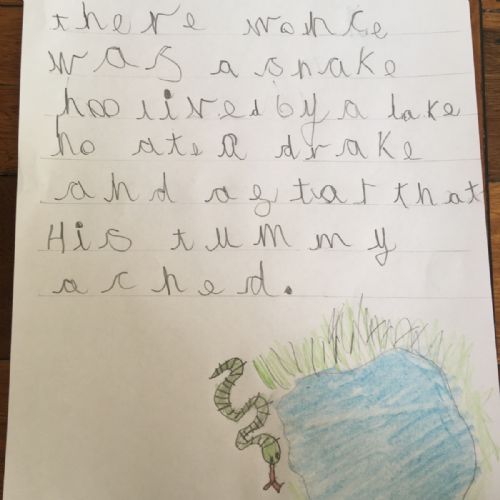 there wonce
was a snake
hoo lived by a lake
ho ate a drake
and agtar that
His tummy
ached.